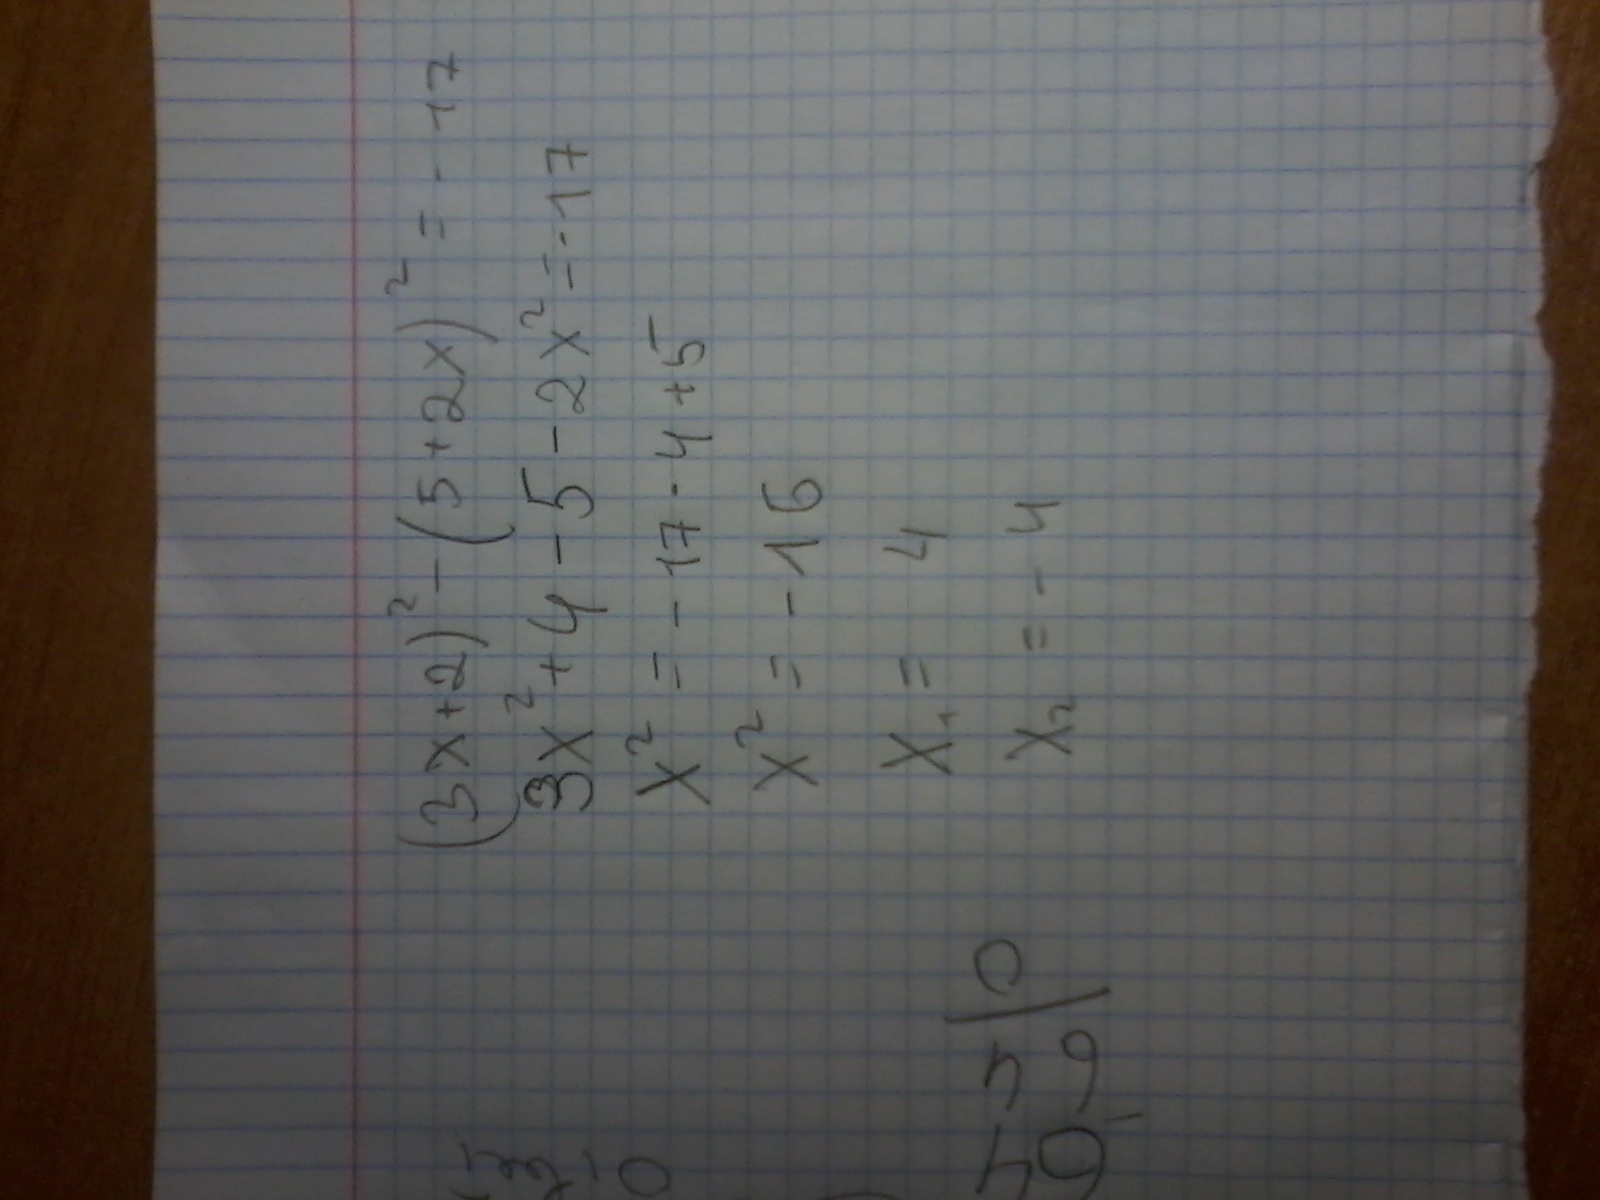 (3x+2)² - (5+2x)² = - 17
3x² + 4 - 5 - 2x² = - 17
x² = - 17 - 4 + 5
x² = - 16
x₁ = 4
x₂ = - 4